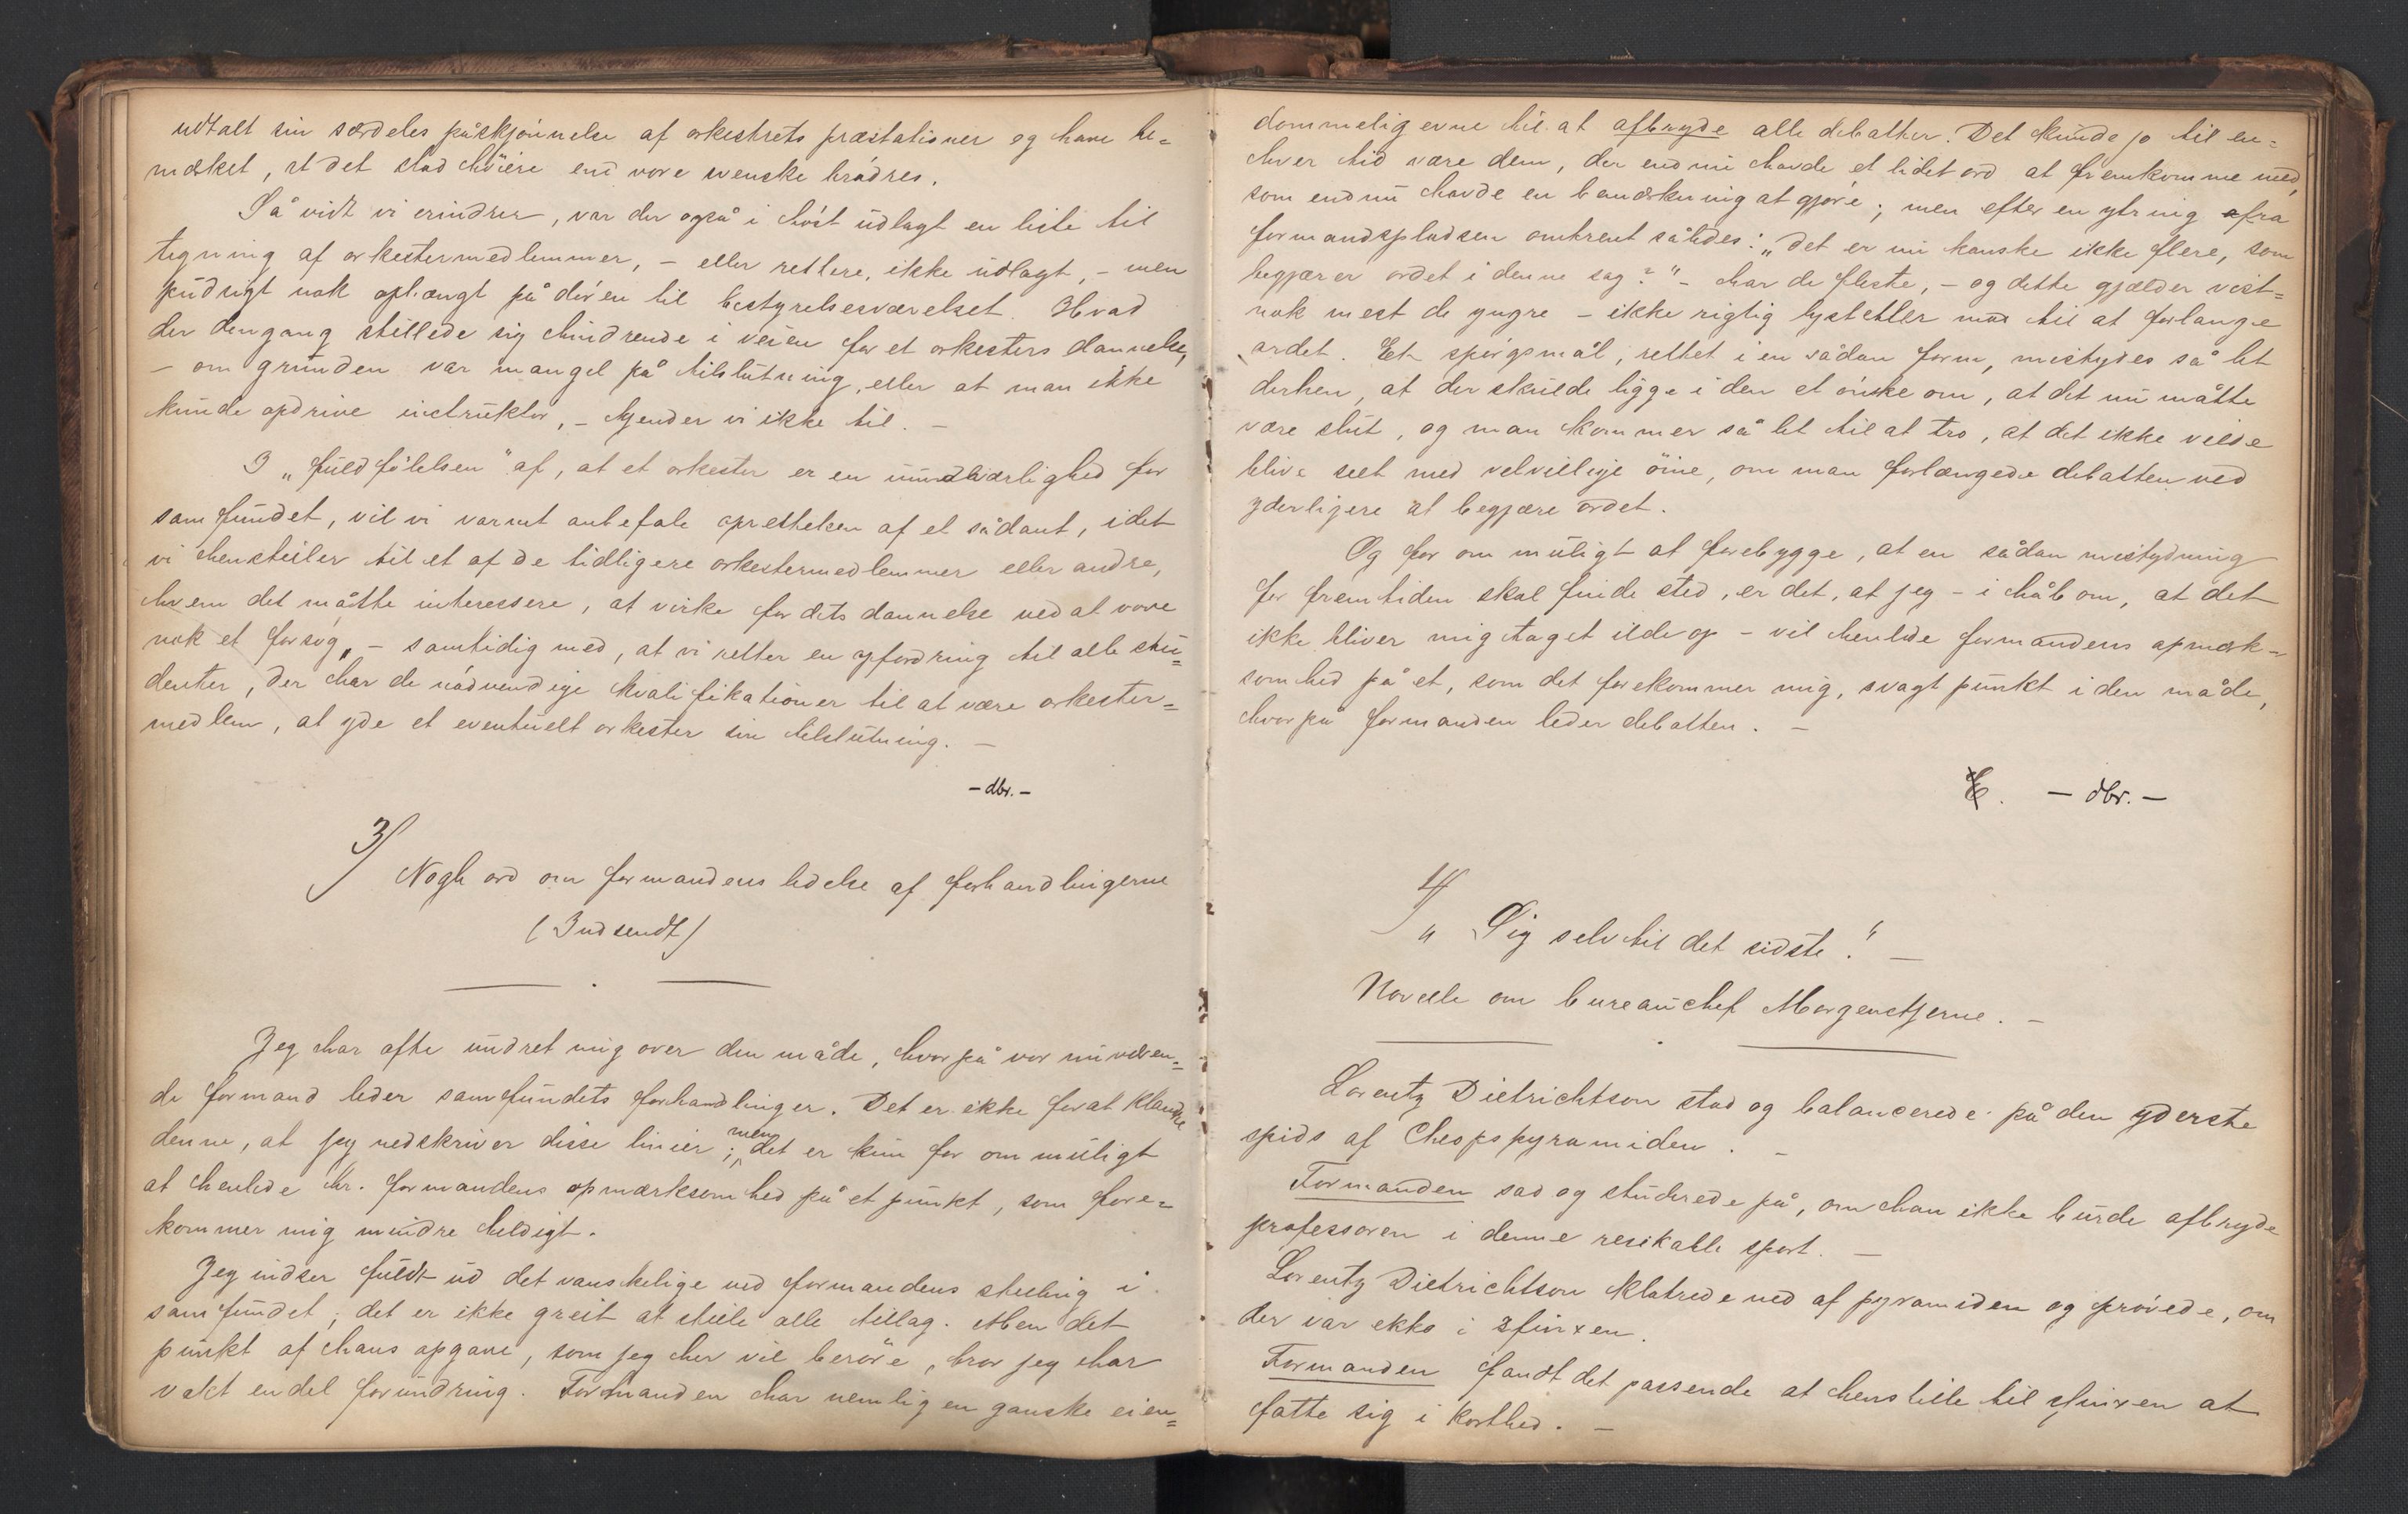 udtalt sin særdeles påskjønnelse af orkestrets præstationer og have be=
mærket, at det stod høiere end vore svenske brødres.
Så vidt vi erindrer, var der også i høst udlagt en liste til
tegning af orkestermedlemmer, – eller rettere, ikke udlagt, – men
pudsigt nok ophængt på døren til bestyrelsesværelset. Hvad
der dengang stillede sig hindrende i veien for et orkesters dannelse,
– om grunden var mangel på tilslutning, eller at man ikke
kunde opdrive instruktør, – kjender vi ikke til. –
I „fuldfølelsen" af, at et orkester er en uundværlighed for
samfundet, vil vi varmt anbefale oprettelsen af et sådant, idet
vi henstiller til et af de tidligere orkestermedlemmer eller andre,
hvem det måtte interessere, at virke for dets dannelse ved at vove
nok et forsøg, – samtidig med, at vi retter en opfordring til alle stu=
denter, der har de nødvendige kvalifikationer til at være orkester=
medlem, at yde et eventuelt orkester sin tilslutning. –
– dbr. –
3/ Nogle ord om formandens ledelse af forhandlingerne
(Indsendt)
Jeg har ofte undret mig over den måde, hvorpå vor nuværen=
de formand leder samfundets forhandlinger. Det er ikke for at klandre
denne, at jeg nedskriver disse linier; men det er kun for om muligt
at henlede hr. formandens opmærksomhed på et punkt, som fore=
kommer mig mindre heldigt.
Jeg indser fuldt ud det vanskelige ved formandens stilling i
samfundet; det er ikke greit at stille alle tillag. Men det
punkt af hans opgave, som jeg her vil berøre, tror jeg har
vakt endel forundring. Formanden har nemlig en ganske eien=
dommelig evne til at afbryde alle debatter. Det kunde jo til en=
hver tid være dem, der endnu havde et lidet ord at fremkomme med,
som endnu havde en bemærkning at gjøre; men efter en ytring fra
formandspladsen omtrent således: „det er nu kanske ikke flere, som
begjærer ordet i denne sag?" – har de fleste, – og dette gjælder vist=
nok mest de yngre – ikke rigtig lyst eller mod til at forlange
ordet. Et spørgsmål, rettet i en sådan form, mistydes så let
derhen, at der skulde ligge i den et ønske om, at det nu måtte
være slut, og man kommer så let til at tro, at det ikke vilde
blive seet med velvillige øine, om man forlængede debatten ved
yderligere at begjære ordet.
Og for om muligt at forebygge, at en sådan mistydning
for fremtiden skal finde sted, er det, at jeg – i håb om, at det
ikke bliver mig taget ilde op – vil henlede formandens opmærk=
somhed på et, som det forekommer mig, svagt punkt i den måde,
hvorpå formanden leder debatten. –
– dbr. –
4/ „Dig selv til det sidste!" –
Novelle om bureauchef Morgenstjerne. –
Lorentz Dietrichson stod og balancerede på den yderste
spids af Cheopspyramiden. –
Formanden sad og studerede på, om han ikke burde afbryde
professoren i denne resikable sport. –
Lorentz Dietrichson klatrede ned af pyramiden og prøvede, om
der var ekko i sfinxen.
Formanden fandt det passende at henstille til sfinxen at
fatte sig i korthed. –